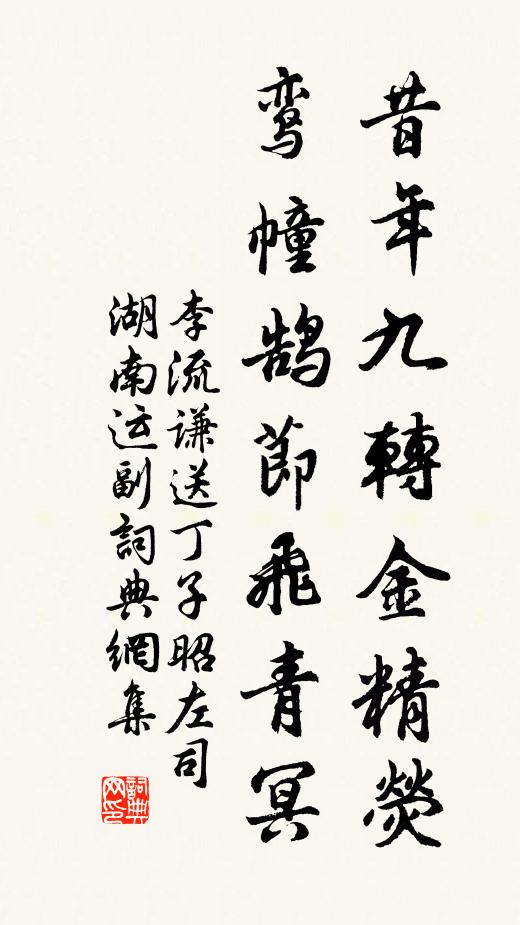 昔年九轉金精熒
鸾幢鹄節飛青冥
李流謙送丁子昭左司
湖南运副詞典網集
詞典网印